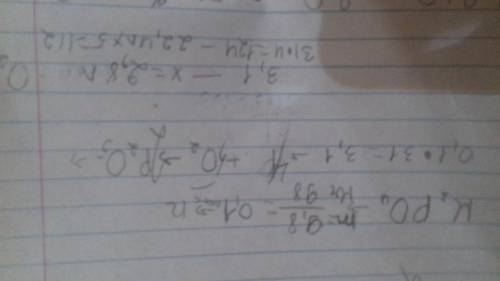 H₃PO₄ m 9,8 / Mr 98 = 0,1
0,1 • 31 = 3,1 → 4P + 5O₂ → 2P₂O₅ =>
3,1 — x = 2,8 л
31•4=124 — 22,4л×5=112